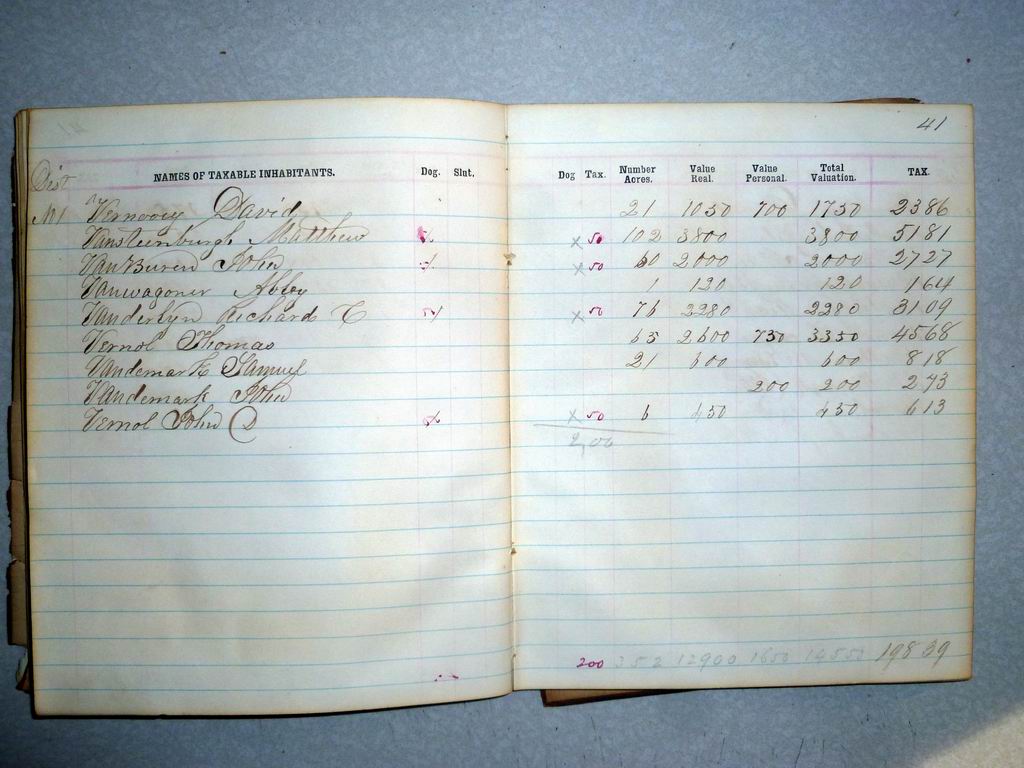 41
Dist NAMES OF TAXABLE INHABITANTS. Dog. Slut. Dog Tax. Number Acres. Value Real. Value Personal. Total Valuation. TAX.
Vernooy David 21 1050 700 1750 2386
Vansteenburgh Matthew x 50 102 3800 3800 5181
VanBuren John x 50 60 2000 2000 2727
Vanwagoner Abbey 1 120 120 164
Vanderlyn Richard C x 50 76 2280 2280 3109
Vernol Thomas 65 2600 750 3350 4568
Vandemark Samuel 21 600 600 818
Vandemark John 200 200 273
Vernol John D x 50 6 450 450 613
2,00
200 352 12900 1650 14550 19839